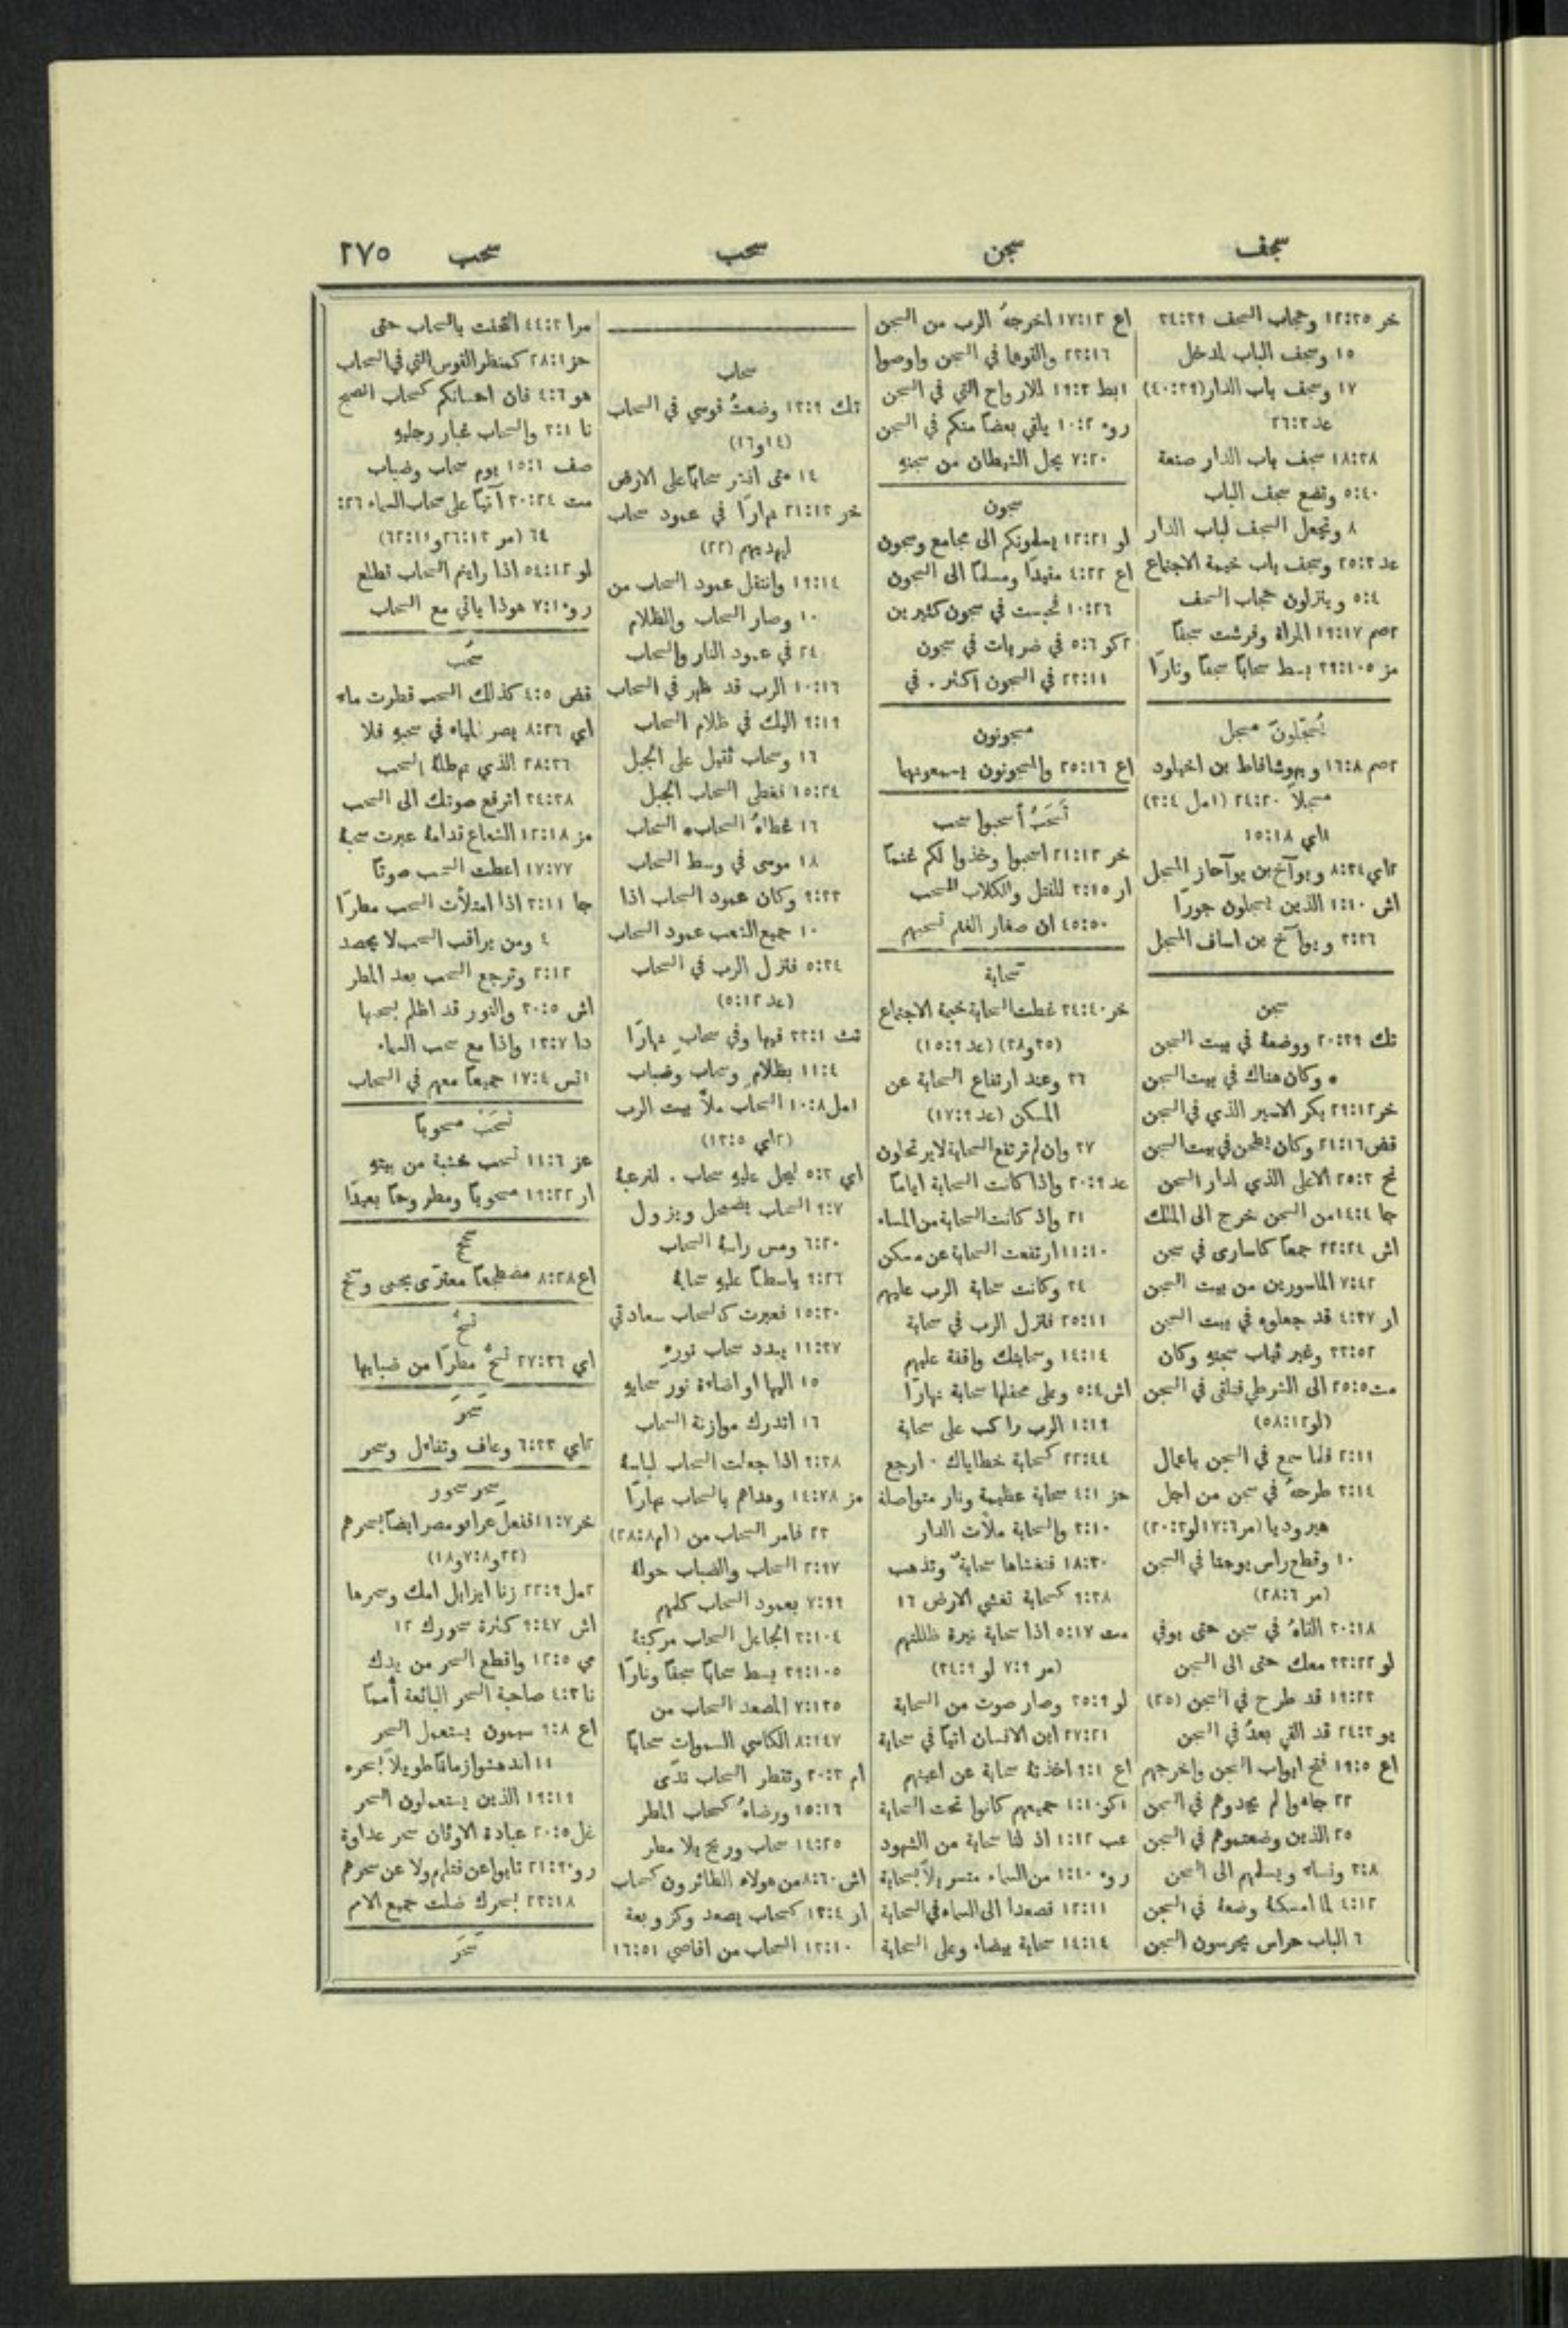 سجف سجن سحب سحب ٢٧٥
خر ١٢:٣٥ وحجاب السجف ٣٤:٣٩
١٥ وسجف الباب لمدخل
١٧ وسجف باب الدار (٤٠:٣٩)
عد ٢٦:٣
١٨:٣٨ سجف باب الدار صنعة
٥:٤٠ وتضع سجف الباب
٨ وتجعل السجف لباب الدار
عد ٢٥:٣ وسجف باب خيمة الاجتماع
٥:٤ وينزلون حجاب السجف
٢صم ١٩:١٧ المرأة وفرشت سجفًا
مز ٣٩:١٠٥ بسط سحابًا سجفًا ونارًا
يُسَجّلون مسجل
٢صم ١٦:٨ ويهوشافاط بن اخيلود
مسجلاً ٢٤:٢٠ (١مل ٣:٤)
١اي ١٥:١٨
٢اي ٨:٣٤ ويوآخ بن يوآحاز المسجل
اش ١:١٠ الذين يسجلون جورًا
٣:٣٦ ويوآخ بن اساف المسجل
سجن
تك ٢٠:٣٩ ووضعهُ في بيت السجن
٠ وكان هناك في بيت السجن
خر ٢٩:١٢ بكر الاسير الذي في السجن
قض ٢١:١٦ وكان يطحن في بيت السجن
نح ٢٥:٣ الاعلى الذي لدار السجن
جا ١٤:٤ من السجن خرج الى الملك
اش ٢٢:٢٤ جمعًا كاسارى في سجن
٧:٤٢ الماسورين من بيت السجن
ار ٤:٣٧ قد جعلوه في بيت السجن
٣٣:٥٢ وغير ثياب سجنهِ وكان
مت ٢٥:٥ الى الشرطي فتلقى في السجن
(لو ٥٨:١٢)
٢:١١ فلما سمع في السجن باعمال
٣:١٤ طرحهُ في سجن من اجل
هيروديا (مر ١٧:٦ لو ٢٠:٣)
١٠ وقطع راس يوحنا في السجن
(مر ٢٨:٦)
٣٠:١٨ القاهُ في سجن حتى يوفي
لو ٣٣:٢٢ معك حتى الى السجن
١٩:٢٣ قد طرح في السجن (٢٥)
يو ٢٤:٣ قد القي بعدُ في السجن
اع ١٩:٥ فتح ابواب السجن واخرجهم
٢٢ جاءوا لم يجدوهم في السجن
٢٥ الذين وضعتموهم في السجن
٣:٨ ونساء ويسلمهم الى السجن
٤:١٢ لما امسكهُ وضعهُ في السجن
٦ الباب حراس يحرسون السجن
اع ١٧:١٢ اخرجهُ الرب من السجن
٢٣:١٦ والقوها في السجن واوصوا
١بط ١٩:٣ للارواح التي في السجن
روء ١٠:٢ يلقي بعضًا منكم في السجن
٧:٢٠ يحل الشيطان من سجنهِ
سجون
لو ١٢:٢١ يسلمونكم الى مجامع وسجون
اع ٤:٢٢ مقيدًا ومسلمًا الى السجون
١٠:٢٦ فحبست في سجون كثيرين
٢كو ٥:٦ في ضربات في سجون
٢٣:١١ في السجون اكثر. في
مسجونون
اع ٢٥:١٦ والمسجونون يسمعونهما
تَسحَبُ أسحبوا سحب
خر ٢١:١٢ اسحبوا وخذوا لكم غنمًا
ار ٣:١٥ للقتل والكلاب للسحب
٤٥:٥٠ ان صغار الغنم تسحبهم
سَحابة
خر ٣٤:٤٠ غطت السحابة خيمة الاجتماع
(٣٥ و٣٨) (عد ١٥:٩)
٣٦ وعند ارتفاع السحابة عن
المسكن (عد ١٧:٩)
٣٧ وان لم ترتفع السحابة لا يرتحلون
عد ٢٠:٩ واذا كانت السحابة ايامًا
٢١ واذا كانت السحابة من المساء
١١:١٠ ارتفعت السحابة عن مسكن
٣٤ وكانت سحابة الرب عليهم
٢٥:١١ فنزل الرب في سحابة
١٤:١٤ وسحابتك واقفة عليهم
اش ٥:٤ وعلى محفلها سحابة نهارًا
١:١٩ الرب راكب على سحابة
٢٢:٤٤ كسحابة خطاياك. ارجع
حز ٤:١ سحابة عظيمة ونار متواصلة
٣:١٠ والسحابة ملأت الدار
١٨:٣٠ فتغشاها سحابةٌ وتذهب
٩:٣٨ كسحابة تغشي الارض ١٦
مت ٥:١٧ اذا سحابة نيرة ظللتهم
(مر ٧:٩ لو ٣٤:٩)
لو ٣٥:٩ وصار صوت من السحابة
٢٧:٢١ ابن الانسان اتيًا في سحابة
اع ٩:١ اخذتهُ سحابة عن اعينهم
١كو ١:١٠ جميعهم كانوا تحت السحابة
عب ١:١٢ اذ لنا سحابة من الشهود
روء ١:١٠ من السماء متسربلاً بسحابة
١٢:١١ فصعدا الى السماء في السحابة
١٤:١٤ سحابة بيضاء وعلى السحابة
سحاب
تك ١٣:٩ وضعتُ قوسي في السحاب
(١٤ و١٦)
١٤ متى انشر سحابًا على الارض
خر ٢١:١٣ نهارًا في عمود سحاب
ليهديهم (٢٢)
١٩:١٤ وانتقل عمود السحاب من
٢٠ وصار السحاب والظلام
٢٤ في عمود النار والسحاب
١٠:١٦ الرب قد ظهر في السحاب
٩:١٩ اليك في ظلام السحاب
١٦ وسحاب ثقيل على الجبل
١٥:٢٤ فغطى السحاب الجبل
١٦ غطاهُ السحاب السحاب
١٨ موسى في وسط السحاب
٩:٣٣ وكان عمود السحاب اذا
١٠ جميع الشعب عمود السحاب
٥:٣٤ فنزل الرب في السحاب
(عد ٥:١٢)
تث ٣٣:١ فيها وفي سحابٍ نهارًا
١١:٤ بظلامٍ وسحاب وضباب
١مل ١٠:٨ السحاب ملأ بيت الرب
(٢اي ١٣:٥)
اي ٥:٣ ليحل عليهِ سحاب. لترعبهُ
٩:٧ السحاب يضمحل ويزول
٦:٢٠ ومس راسهُ السحاب
٩:٢٦ باسطًا عليهِ سحابهُ
١٥:٣٠ فعبرت كالسحاب سعادتي
١١:٣٧ يبدد سحاب نورهِ
١٥ اليها او اضاءة نور سحابهِ
١٦ اتدرك موازنة السحاب
٩:٣٨ اذا جعلت السحاب لباسهُ
مز ١٤:٧٨ وهداهم بالسحاب نهارًا
٢٣ فامر السحاب من (ام ٢٨:٨)
٢:٩٧ السحاب والضباب حولهُ
٧:٩٩ بعمود السحاب كلمهم
٣:١٠٤ الجاعل السحاب مركبتهُ
٣٩:١٠٥ بسط سحابًا سجفًا ونارًا
٧:١٣٥ المصعد السحاب من
٨:١٤٧ الكاسي السموات سحابًا
ام ٢٠:٣ وتقطر السحاب ندًى
١٥:١٦ ورضاهُ كسحاب المطر
١٤:٢٥ سحاب وريح بلا مطر
اش ٨:٦٠ من هولاء الطائرون كسحاب
ار ١٣:٤ كسحاب يصعد وكزوبعة
١٣:١٠ السحاب من اقاصي ١٦:٥١
مرا ٤٤:٣ التحفت بالسحاب حتى
حز ٢٨:١ كمنظر القوس التي في السحاب
هو ٤:٦ فان احسانكم كسحاب الصبح
نا ٣:١ والسحاب غبار رجليهِ
صف ١٥:١ يوم سحاب وضباب
مت ٣٠:٢٤ آتيًا على سحاب السماء ٢٦:
٦٤ (مر ٢٦:١٣ و٦٢:١٤)
لو ٥٤:١٢ اذا رايتم السحاب تطلع
روء ٧:١ هوذا ياتي مع السحاب
سُحُب
قض ٤:٥ كذلك السحب قطرت ماء
اي ٨:٢٦ يصر المياه في سحبهِ فلا
٢٨:٣٦ الذي تهطلهُ السحب
٣٤:٣٨ اترفع صوتك الى السحب
مز ١٢:١٨ الشعاع قدامهُ عبرت سحبهُ
١٧:٧٧ اعطت السحب صوتًا
جا ٣:١١ اذا امتلأت السحب مطرًا
٤ ومن يراقب السحب لا يحصد
٢:١٢ وترجع السحب بعد المطر
اش ٣٠:٥ والنور قد اظلم بسحبها
دا ١٣:٧ واذا مع سحب السماء
١تس ١٧:٤ جميعًا معهم في السحاب
تسحَبُ مسحوبًا
عز ١١:٦ تسحب خشبة من بيتهِ
ار ١٩:٢٢ مسحوبًا ومطروحًا بعيدًا
سحج
اع ٨:٢٨ مضطجعًا معترًى بحمى وسحج
تسحُّ
اي ٢٧:٣٦ تسحُّ مطرًا من ضبابها
سَحَرَ
٢اي ٦:٣٣ وعاف وتفاءل وسحر
سحر سحور
خر ١١:٧ ففعل عرافو مصر ايضًا بسحرهم
(٢٢ و٧:٨ و١٨)
٢مل ٢٢:٩ زنا ايزابل امك وسحرها
اش ٩:٤٧ كثرة سحورك ١٢
مي ١٢:٥ واقطع السحر من يدك
نا ٤:٣ صاحبة السحر البائعة أممًا
اع ٩:٨ سيمون يستعمل السحر
١١ اندهشوا زمانًا طويلاً بسحره
١٩:١٩ الذين يستعملون السحر
غل ٢٠:٥ عبادة الاوثان سحر عداوة
روء ٢١:٩ تابوا عن قتلهم ولا عن سحرهم
٢٣:١٨ بسحرك ضلت جميع الامم
سَحَرَ